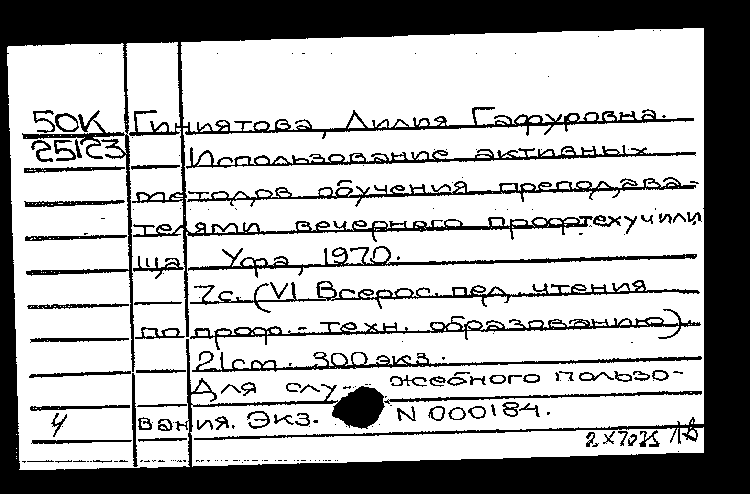 50К Гиниятова, Лилия Гафуровна.
25123 Использование активных
методов обучения преподава-
телями вечернего профтехучили
ща Уфа, 1970.
7с. (VI Всерос. пед. чтения
по проф.- техн. образованию).
21cm. 300 экз.
Для слу- жебного пользо-
4 вания. Экз. N 000184.